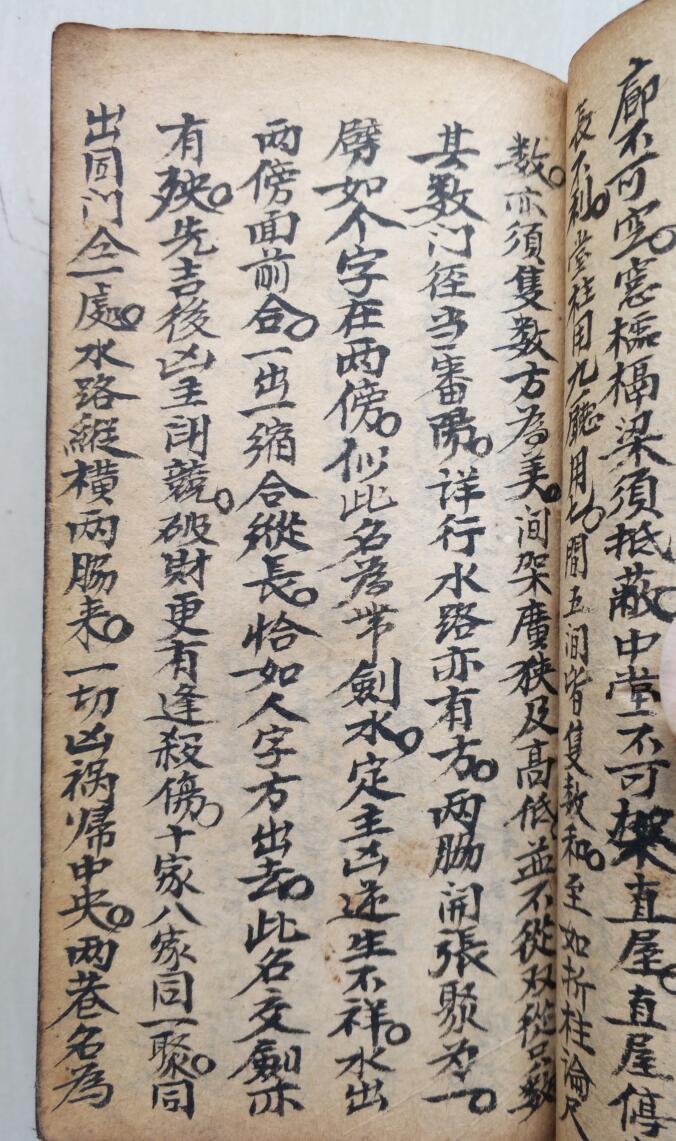 廊不可空。窓櫺槅梁須抵蔽中堂不可架直屋。直屋停
長不利。堂柱用九廳用七。間五间皆隻数和。至如折柱論尺
数。亦須隻数方為美。间架廣狹及高低。並不從双從只数
其数门徑当番陽。详行水路亦有方。两肠開張聚為一。
劈如个字在两傍。似此名為带劍水。定主凶逆生不祥。水出
两傍面前合。一出一缩合縱長。恰如人字方出去。此名交劍亦
有殃。先吉後凶主闭競。破財更有逢殺傷。十家八家同一聚。同
出同门仝一處。水路縱横两肠来。一切凶祸帰中央。两巷名為